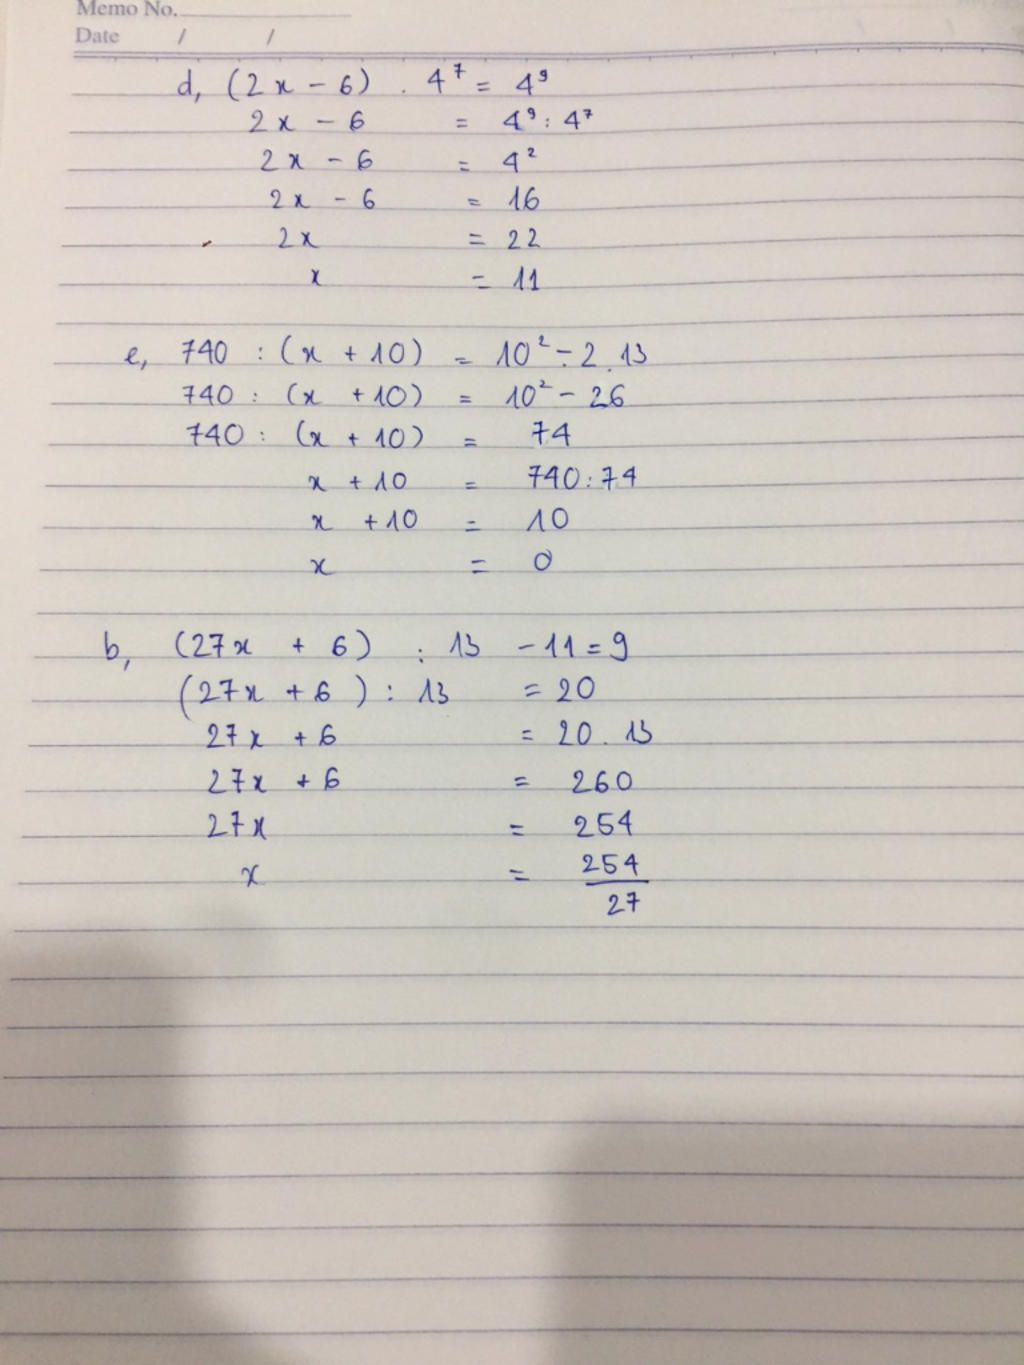 Memo No.
Date / /
d, (2x - 6) . 4⁷ = 4⁹
2x - 6 = 4⁹ : 4⁷
2x - 6 = 4²
2x - 6 = 16
2x = 22
x = 11
e, 740 : (x + 10) = 10² - 2.13
740 : (x + 10) = 10² - 26
740 : (x + 10) = 74
x + 10 = 740 : 74
x + 10 = 10
x = 0
b, (27x + 6) : 13 - 11 = 9
(27x + 6) : 13 = 20
27x + 6 = 20 . 13
27x + 6 = 260
27x = 254
x = 254/27